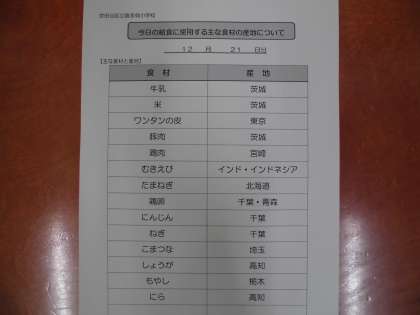 今日の給食に使用する主な食材の産地について
12 月 21 日分
【主な食材と産地】
食 材 産 地
牛乳 茨城
米 茨城
ワンタンの皮 東京
豚肉 茨城
鶏肉 宮崎
むきえび インド・インドネシア
たまねぎ 北海道
鶏卵 千葉・青森
にんじん 千葉
ねぎ 千葉
こまつな 埼玉
しょうが 高知
もやし 栃木
にら 高知